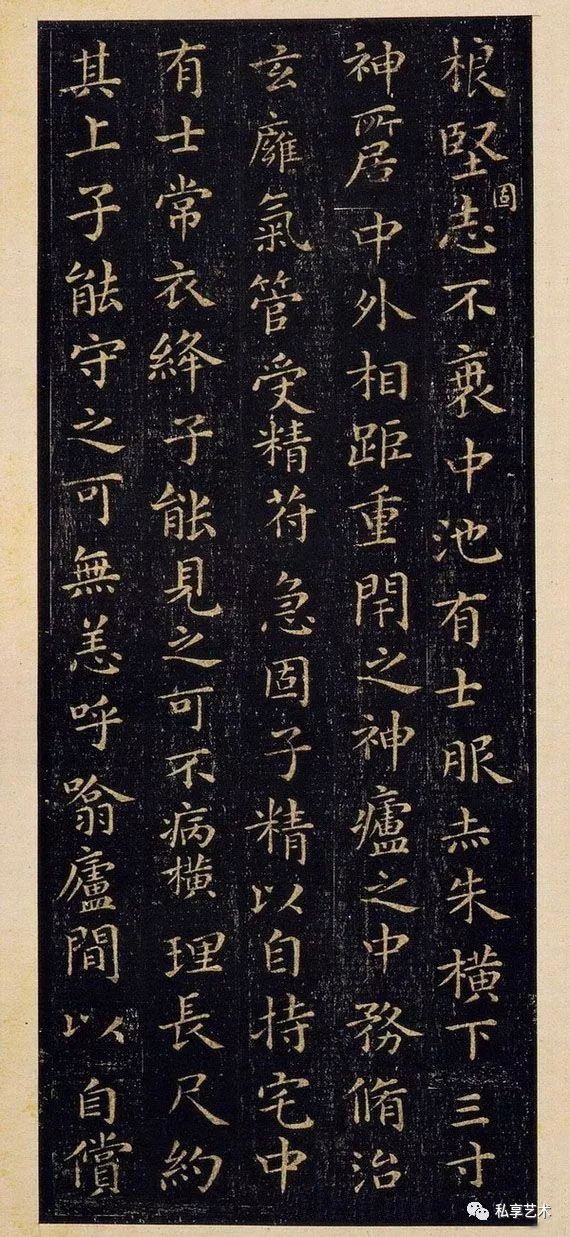 根堅志不衰中池有士服赤朱橫下三寸
固
神所居中外相距重閇之神廬之中務脩治
玄㢕氣管受精苻急固子精以自持宅中
有士常衣絳子能見之可不病橫理長尺約
其上子能守之可無恙呼噏廬間以自償
私享艺术